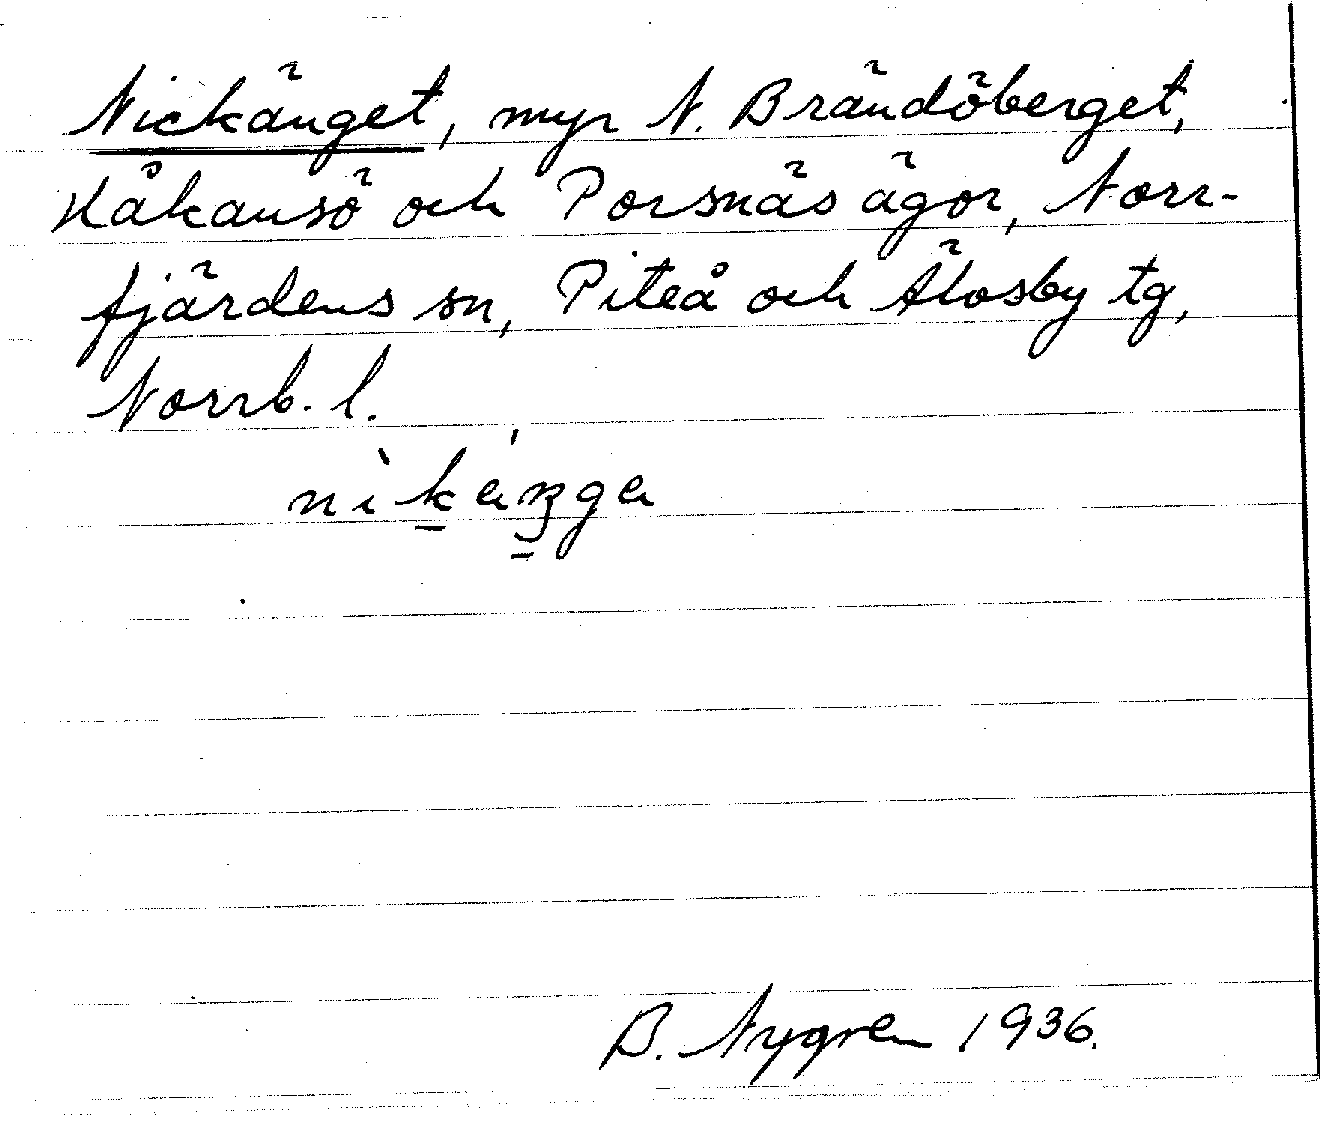 Nickänget, myr N. Brändöberget,
Håkansö och Porsnäs ägor, Norr-
fjärdens sn, Piteå och Älvsby tg,
Norrb. l.
B. Nygren 1936.